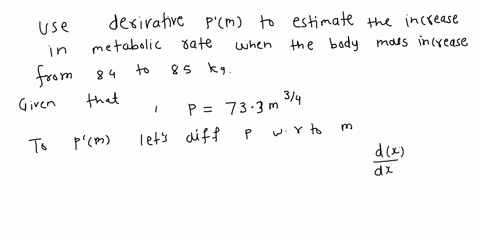 use derivative P'(m) to estimate the increase
in metabolic rate when the body mass increase
from 84 to 85 kg.
Given that , P = 73.3 m^{3/4}
To P'(m) let's diff P w.r to m
d(x)/dx